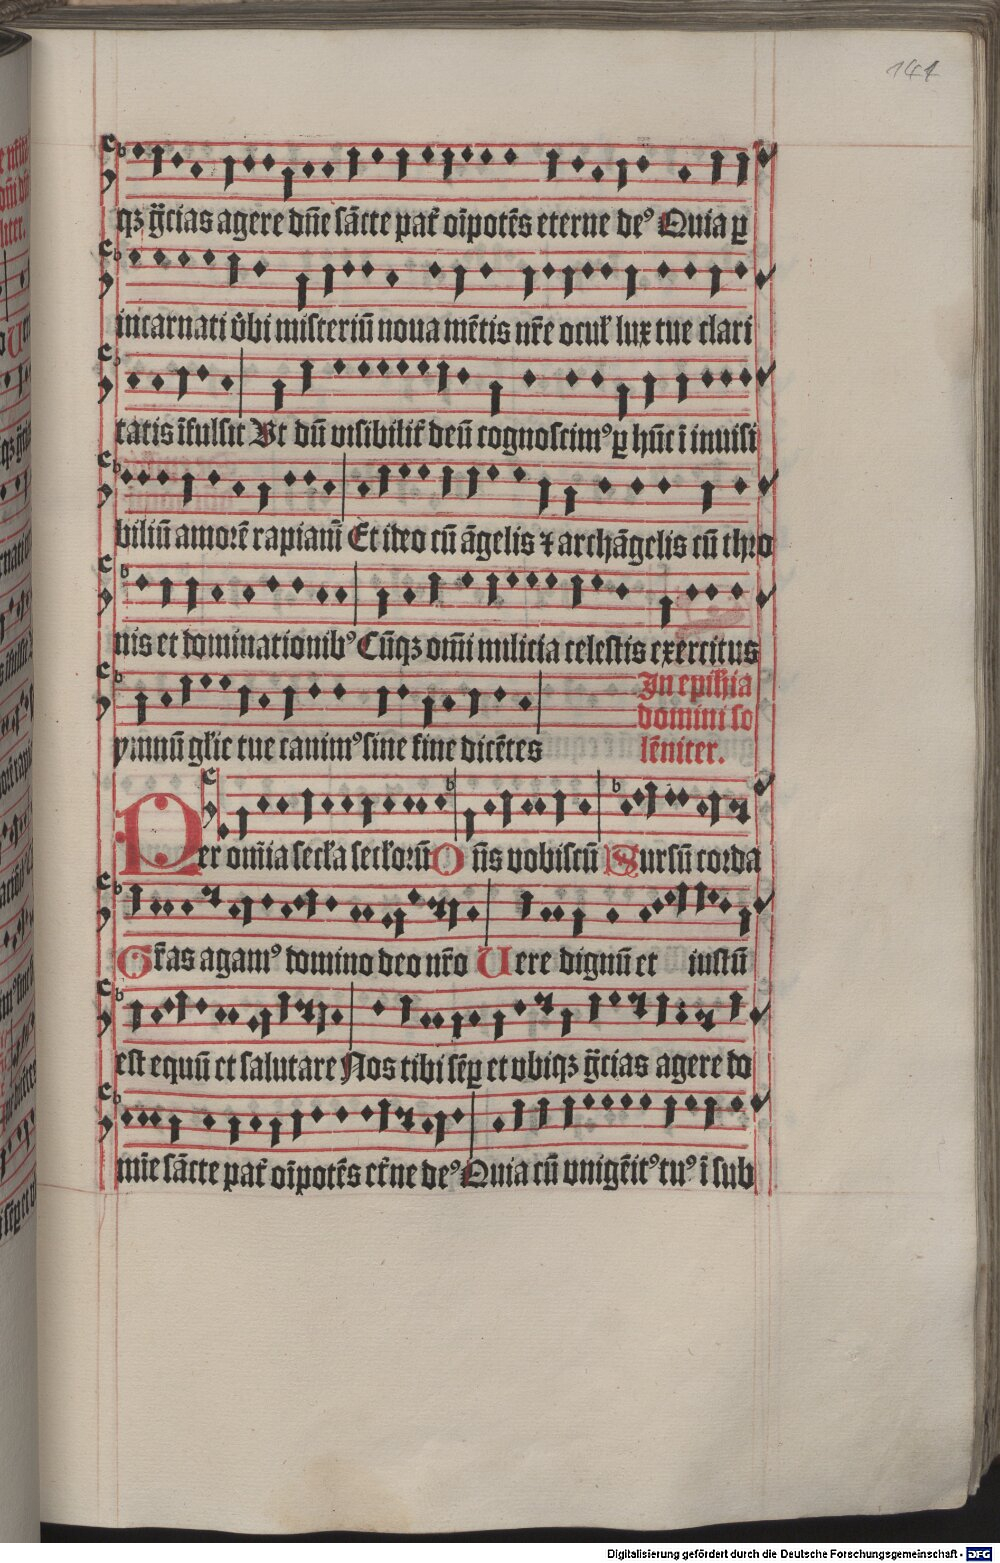 141
qꝫ gͣcias agere dn̄e sācte pat̄ oīpotēs eterne deꝰ Quia ꝑ
incarnati v̄bi misteriū noua mētis nr̄e ocul̄ lux tue clari
tatis īfulsit Vt dū visibilit̄ deū cognoscimꝰ ꝑ hūc ī inuisi
biliū amorē rapiam̄ Et ideo cū āgelis ⁊ archāgelis cū thro
nis et dominationibꝰ Cūqꝫ om̄i milicia celestis exercitus
ymnū gl̄ie tue canimꝰ sine fine dicētes
In epiph̄ia
domini so
lēniter.
Per om̄ia secl̄a seclo̅rū Dn̄s vobiscū Sursū corda
Gr̄as agamꝰ domino deo nr̄o Uere dignū et iustū
est equū et salutare Nos tibi sēꝑ et vbiqꝫ gͣcias agere do
mīe sācte pat̄ oīpotēs et̄ne deꝰ Quia cū vnigēitꝰ tuꝰ ī sub
Digitalisierung gefördert durch die Deutsche Forschungsgemeinschaft - DFG